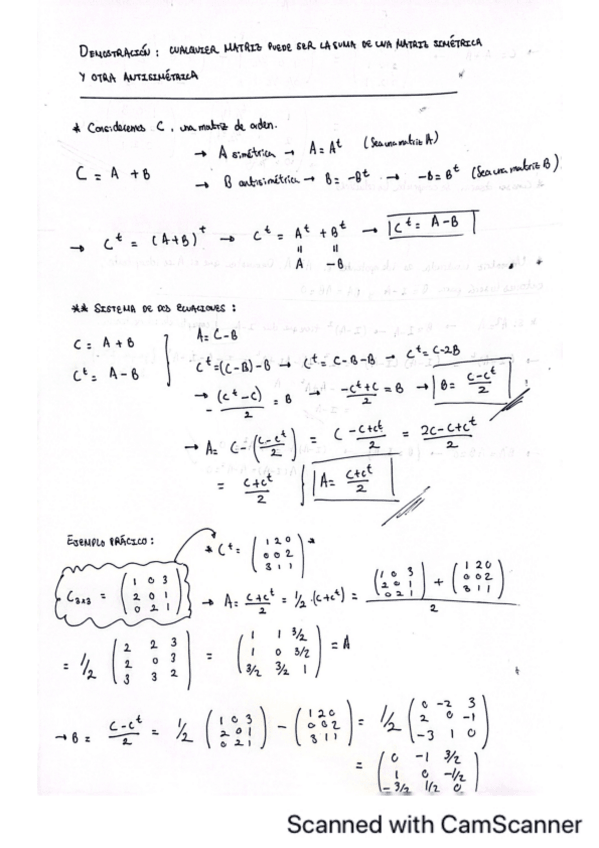 DEMOSTRACIÓN: CUALQUIER MATRIZ PUEDE SER LA SUMA DE UNA MATRIZ SIMÉTRICA
Y OTRA ANTISIMÉTRICA
* Consideremos C, una matriz de orden.
C = A + B
→ A simétrica → A = Aᵗ (Sea una matriz A)
→ B antisimétrica → B = -Bᵗ → -B = Bᵗ (Sea una matriz B)
→ Cᵗ = (A+B)ᵗ → Cᵗ = Aᵗ + Bᵗ → Cᵗ = A - B
= =
A -B
** SISTEMA DE DOS ECUACIONES:
C = A + B
Cᵗ = A - B
A = C - B
Cᵗ = (C-B) - B → Cᵗ = C - B - B → Cᵗ = C - 2B
→ - (Cᵗ - C)/2 = B → (-Cᵗ + C)/2 = B → B = (C - Cᵗ)/2
→ A = C - ((C - Cᵗ)/2) = (C - C + Cᵗ)/2 = (2C - C + Cᵗ)/2
= (C + Cᵗ)/2 } A = (C + Cᵗ)/2
EJEMPLO PRÁCICO:
C₃ₓ₃ = (1 0 3
2 0 1
0 2 1)
* Cᵗ = (1 2 0
0 0 2
3 1 1) *
→ A = (C + Cᵗ)/2 = 1/2 · (C + Cᵗ) = ((1 0 3
2 0 1
0 2 1) + (1 2 0
0 0 2
3 1 1))/2
= 1/2 (2 2 3
2 0 3
3 3 2) = (1 1 3/2
1 0 3/2
3/2 3/2 1) = A
→ B = (C - Cᵗ)/2 = 1/2 (1 0 3
2 0 1
0 2 1) - (1 2 0
0 0 2
3 1 1) = 1/2 (0 -2 3
2 0 -1
-3 1 0)
= (0 -1 3/2
1 0 -1/2
-3/2 1/2 0)
Scanned with CamScanner